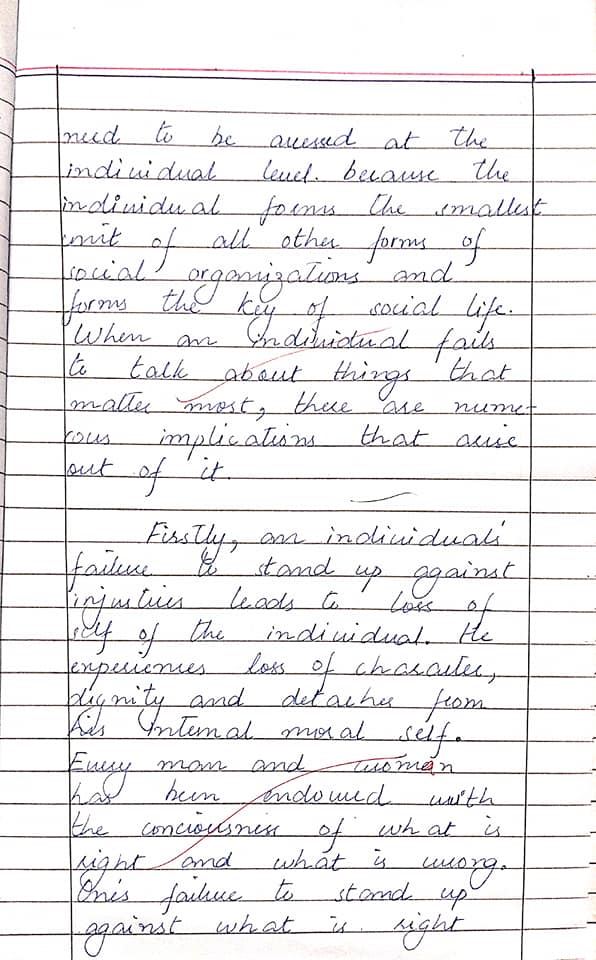 need to be assessed at the
individual level. because the
individual forms the smallest
unit of all other forms of
social organizations and
forms the key of social life.
When an individual fails
to talk about things that
matter most, there are nume-
rous implications that arise
out of it.
Firstly, an individuals'
failure to stand up against
injustices leads to loss of
self of the individual. He
experiences loss of character,
dignity and detaches from
his internal moral self.
Every man and woman
has been endowed with
the conciousness of what is
right and what is wrong.
One's failure to stand up
against what is right